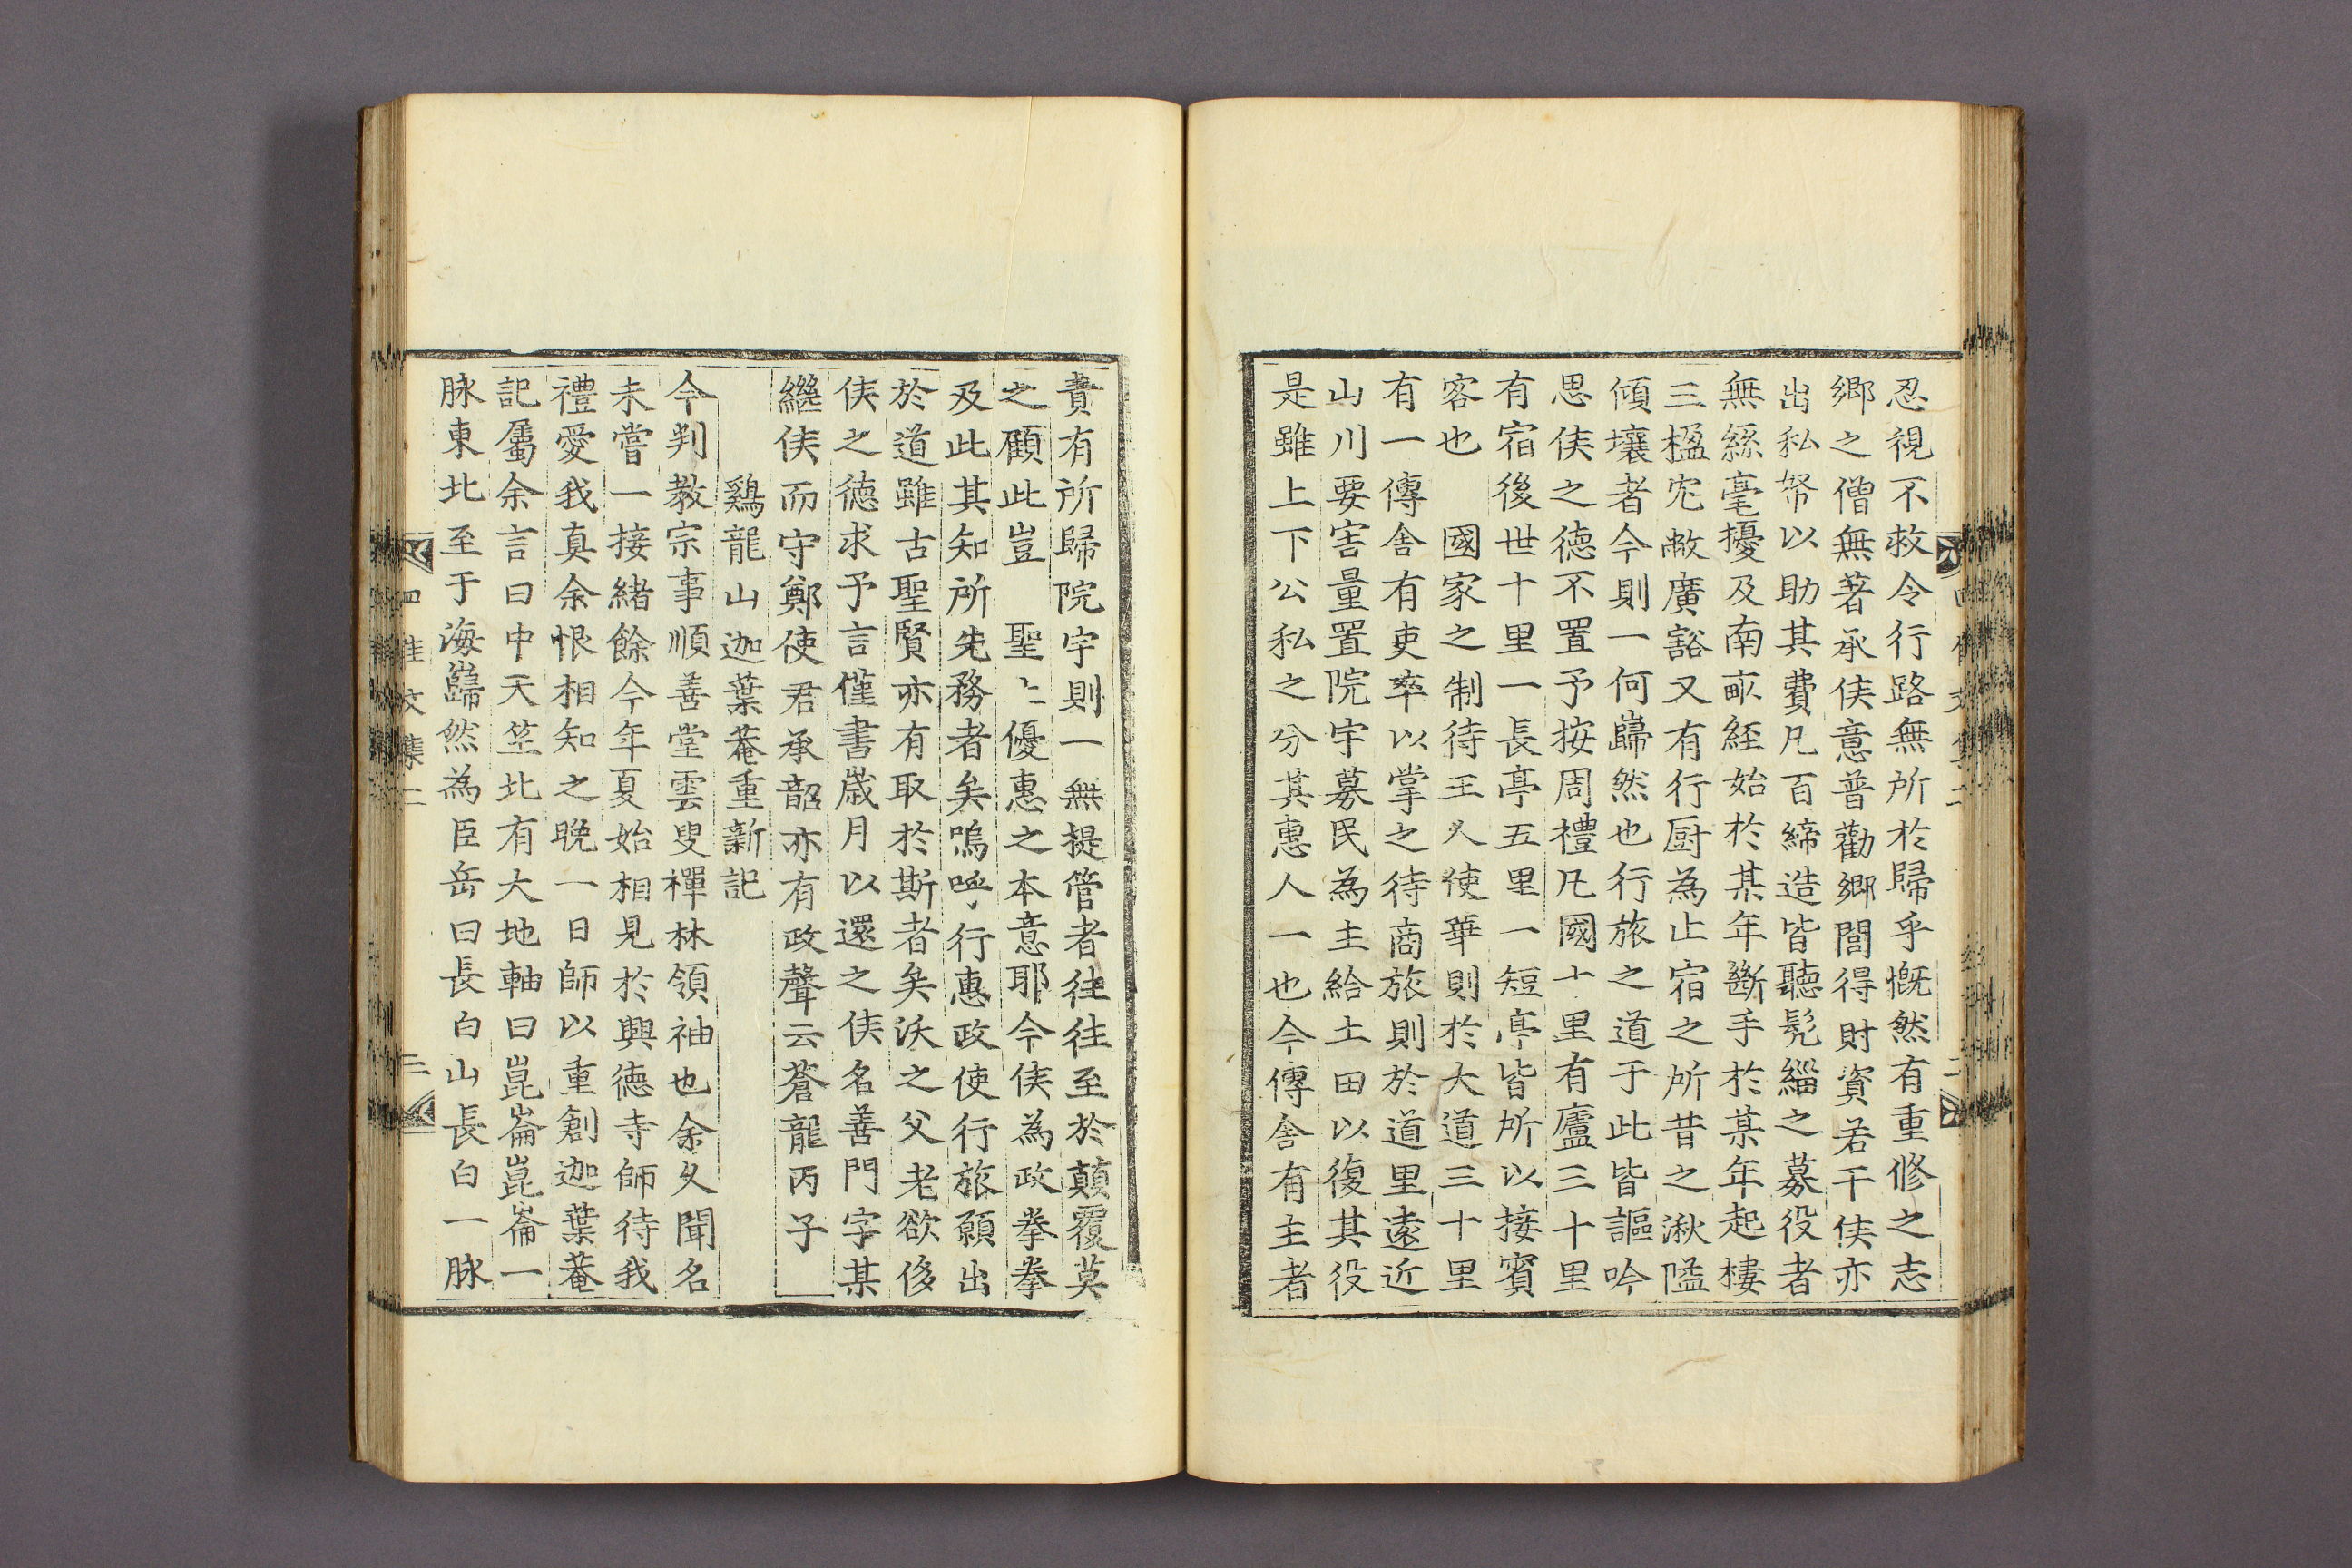 忍視不救令行路無所於歸乎慨然有重修之志
鄕之僧無著承侯意普勸鄕閭得財資若干侯亦
出私帑以助其費凡百締造皆聽髡緇之募役者
無絲毫擾及南畝経始於某年斷手於某年起樓
三楹宏敞廣豁又有行厨為止宿之所昔之湫隘
傾壤者今則一何巋然也行旅之道于此皆謳吟
思侯之德不置予按周禮凡國十里有廬三十里
有宿後世十里一長亭五里一短亭皆所以接賓
客也　國家之制待王人使華則於大道三十里
有一傳舍有吏率以掌之待商旅則於道里遠近
山川要害量置院宇募民為主給土田以復其役
是雖上下公私之分其惠人一也今傳舍有主者
責有所歸院宇則一無提管者往往至於顛覆莫
之顧此豈　聖上優惠之本意耶今侯為政拳拳
及此其知所先務者矣嗚呼行惠政使行旅願出
於道雖古聖賢亦有取於斯者矣沃之父老欲侈
侯之德求予言僅書歲月以還之侯名善門字某
繼侯而守鄭使君承韶亦有政聲云蒼龍丙子
鷄龍山迦葉菴重新記
今判教宗事順善堂雲叟禪林領袖也余久聞名
未嘗一接緒餘今年夏始相見於興德寺師待我
禮愛我真余恨相知之晚一日師以重創迦葉菴
記屬余言曰中天竺北有大地軸曰崑崙崑崙一
脉東北至于海巋然為臣岳曰長白山長白一脉
四佳文集二
三